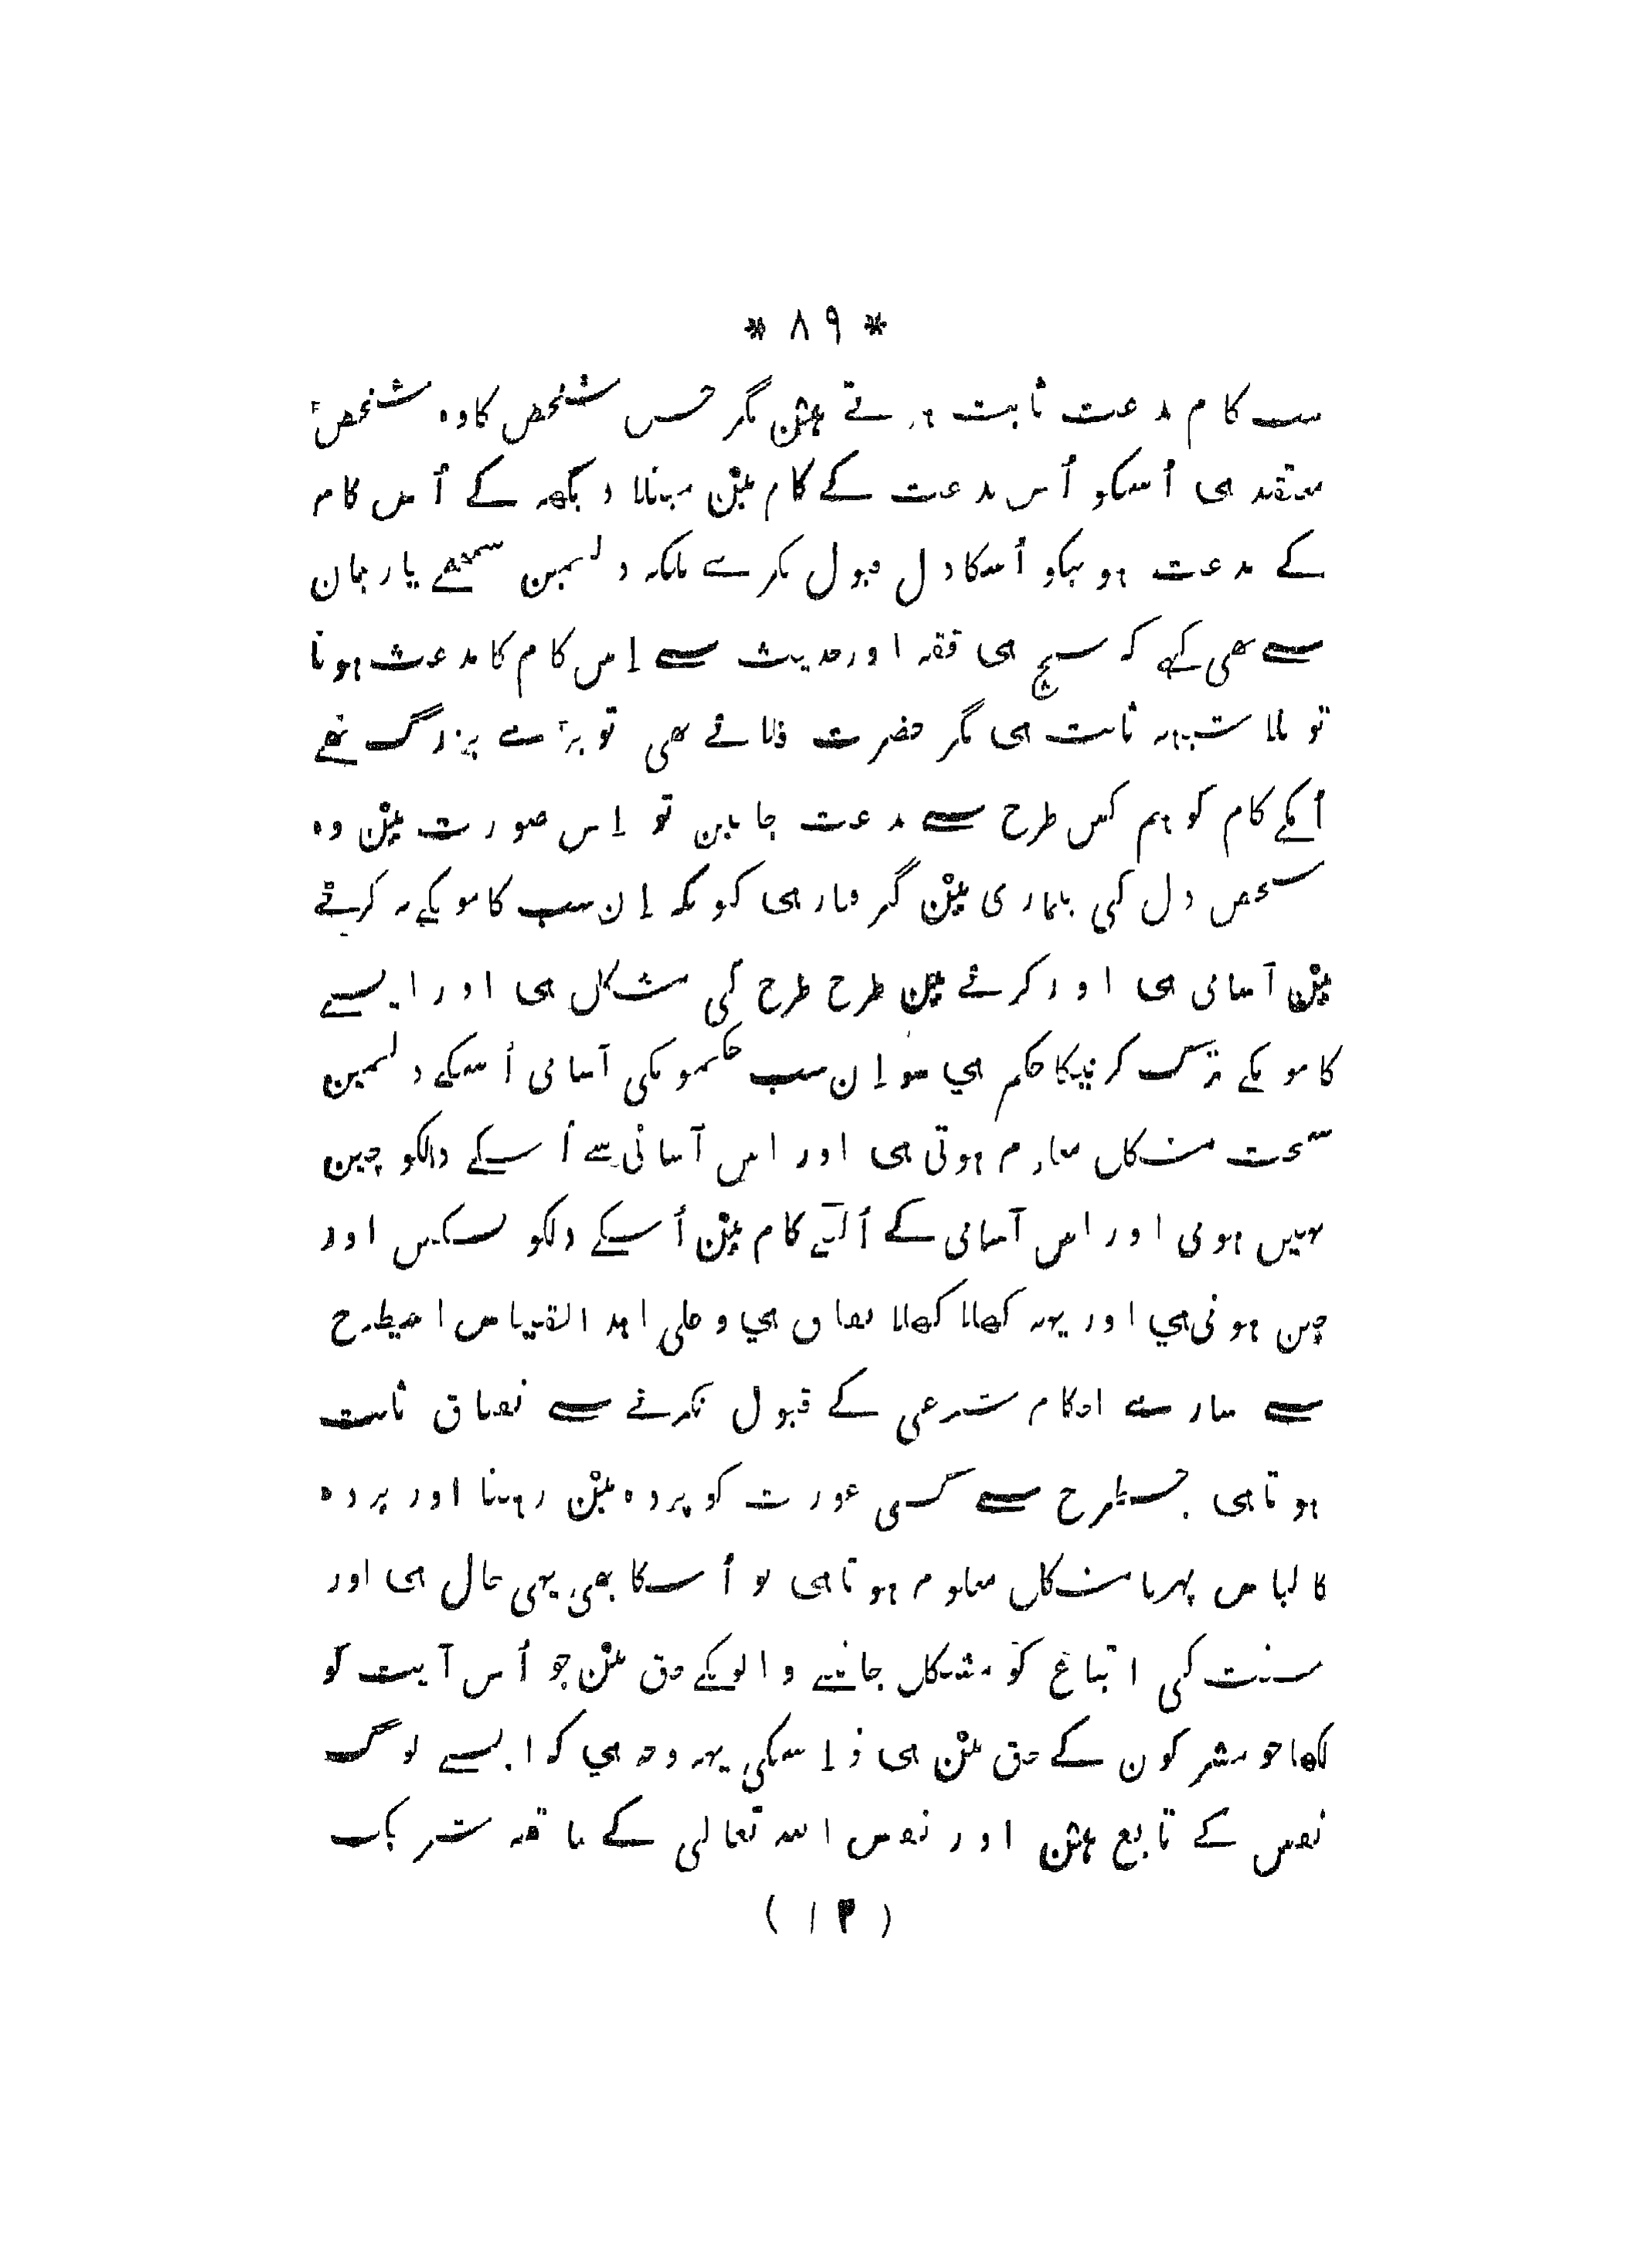 * ٨٩ *
سب کام بدعت ثابت ہوتے ہین مگر جس شخص کا وہ شخص
معتقد ہی اُسکو اُس بدعت کے کام مین مبتلا دیکھہ کے اُس کام
کے بدعت ہونیکو اُسکا دل قبول نکرے بلکہ دلمین سمجھے یا زبان
سے بھی کہے کہ سچ ہی فقہ اور حدیث سے اِس کام کا بدعت ہونا
تو بلا شبہہ ثابت ہی مگر حضرت فلانے بھی تو بڑے بزرگ تھے
اُنکے کام کو ہم کس طرح سے بدعت جانین تو اِس صورت مین وہ
شخص دل کی بیماری مین گرفتار ہی کیونکہ اِن سب کامونکے نہ کرنے
مین آسانی ہی اور کرنے مین طرح طرح کی مشکل ہی اور ایسے
کامونکے ترک کرنیکا حکم ہی سو اِن سب حکمونکی آسانی اُسکے دلمین
سخت مشکل معلوم ہوتی ہی اور اس آسانی سے اُسکے دلکو چین
نہیں ہوتی اور اس آسانی کے اُلٹے کام مین اُسکے دلکو تسکین اور
چین ہوتی ہی اور یہہ کھلا کھلا نفاق ہی و علی ہذا القیاس اسیطرح
سے سارے احکام شرعی کے قبول نکرنے سے نفاق ثابت
ہوتا ہی جسطرح سے کسی عورت کو پردہ مین رہنا اور پردہ
کا لباس پہرنا مشکل معلوم ہوتا ہی تو اُسکا بھی یہی حال ہی اور
سنت کی اتباع کو مشکل جاننے والونکے حق مین جو اُس آیت کو
لکھا جو مشرکون کے حق مین ہی تو اِسکی یہہ وجہ ہی کہ ایسے لوگ
نفس کے تابع ہین اور نفس اللہ تعالی کے ساتھہ شریک
( ١٢ )